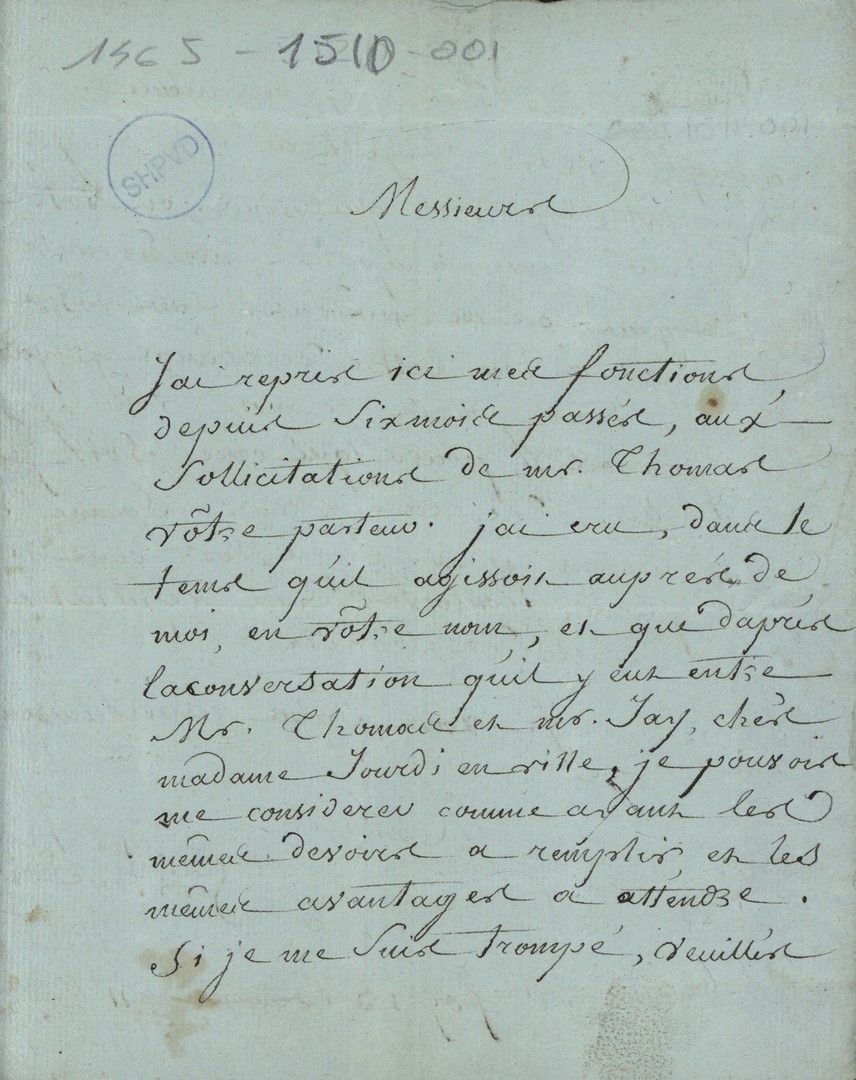 1465 - 1510 - 001
SHPVD
Messieurs
J'ai repris ici mes fonctions,
depuis Six mois passés, aux
Sollicitations de mr. Thomas
vôtre pasteur. j'ai cru, dans le
tems qu'il agissoit auprés de
moi, en vôtre nom, et que d'aprés
la conversation qu'il y eut entre
Mr. Thomas et mr. Jay, chés
madame Jourdi en ville, je pouvois
me considerer comme ayant les
mêmes devoirs a remplir, et les
mêmes avantages a attendre.
Si je me Suis trompé, veuillés